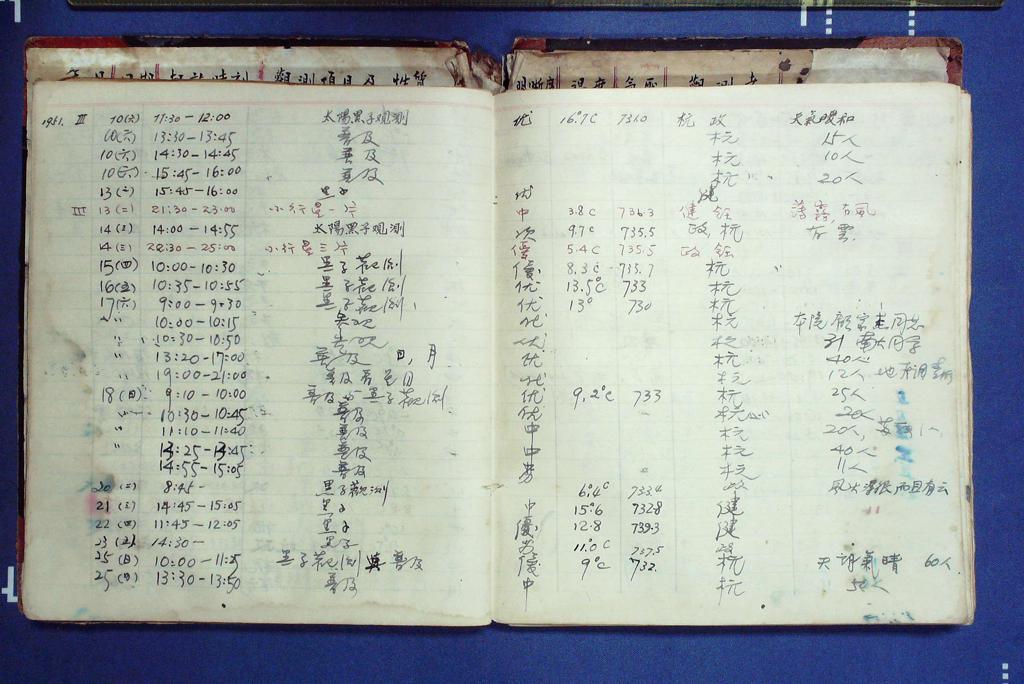 年月 日期 起訖時刻 觀測項目及性質 明晰度 溫度 氣壓 觀測者
1951. III 10(六) 11:30-12:00 太陽黑子观测 优 16.7C 731.0 杭 政 天氣暖和
10(六) 13:30-13:45 普及 杭 15人
10(六) 14:30-14:45 普及 杭 10人
10(六) 15:45-16:00 普及 杭 20人
13(二) 15:45-16:00 黑子 优 健
III 13(二) 21:30-23:00 小行星一片 中 3.8C 736.3 健 薄霧,有風
14(三) 14:00-14:55 太陽黑子观测 次 9.7C 735.5 政,杭 有雲.
14(三) 22:30-25:00 小行星三片 優 5.4C 735.5 政
15(四) 10:00-10:30 黑子觀測 優 8.3C 735.7 杭
16(五) 10:35-10:55 黑子觀測 优 13.5°C 733 杭
17(六) 9:00-9:30 黑子觀測 优 13° 730 杭
〃 10:00-10:15 优 杭 本院 同志
〃 10:30-10:50 优 杭 31 南大同学
〃 13:20-17:00 普及 日,月 优 杭 40人
〃 19:00-21:00 普及 月 优 杭 12人
18(日) 9:10-10:00 普及 黑子觀測 优 9.2°C 733 杭 25人
〃 10:30-10:45 普及 优 杭 20人
〃 11:10-11:40 普及 中 杭 20人,
〃 13:25-13:45 普及 中 杭 40人
〃 14:55-15:05 普及 劣 杭 11人
20(二) 8:45- 黑子觀測 6.4°C 733.4 政 風大 而且有云
21(三) 14:45-15:05 黑子 中 15°6 732.8 健
22(四) 11:45-12:05 黑子 優 12.8 739.3 健
23(五) 14:30- 黑子 劣 11.0°C 737.5
25(日) 10:00-11:25 黑子觀測 與 普及 優 9°C 732. 杭 天朗氣晴 60人
25(日) 13:30-13:50 普及 中 杭 50人